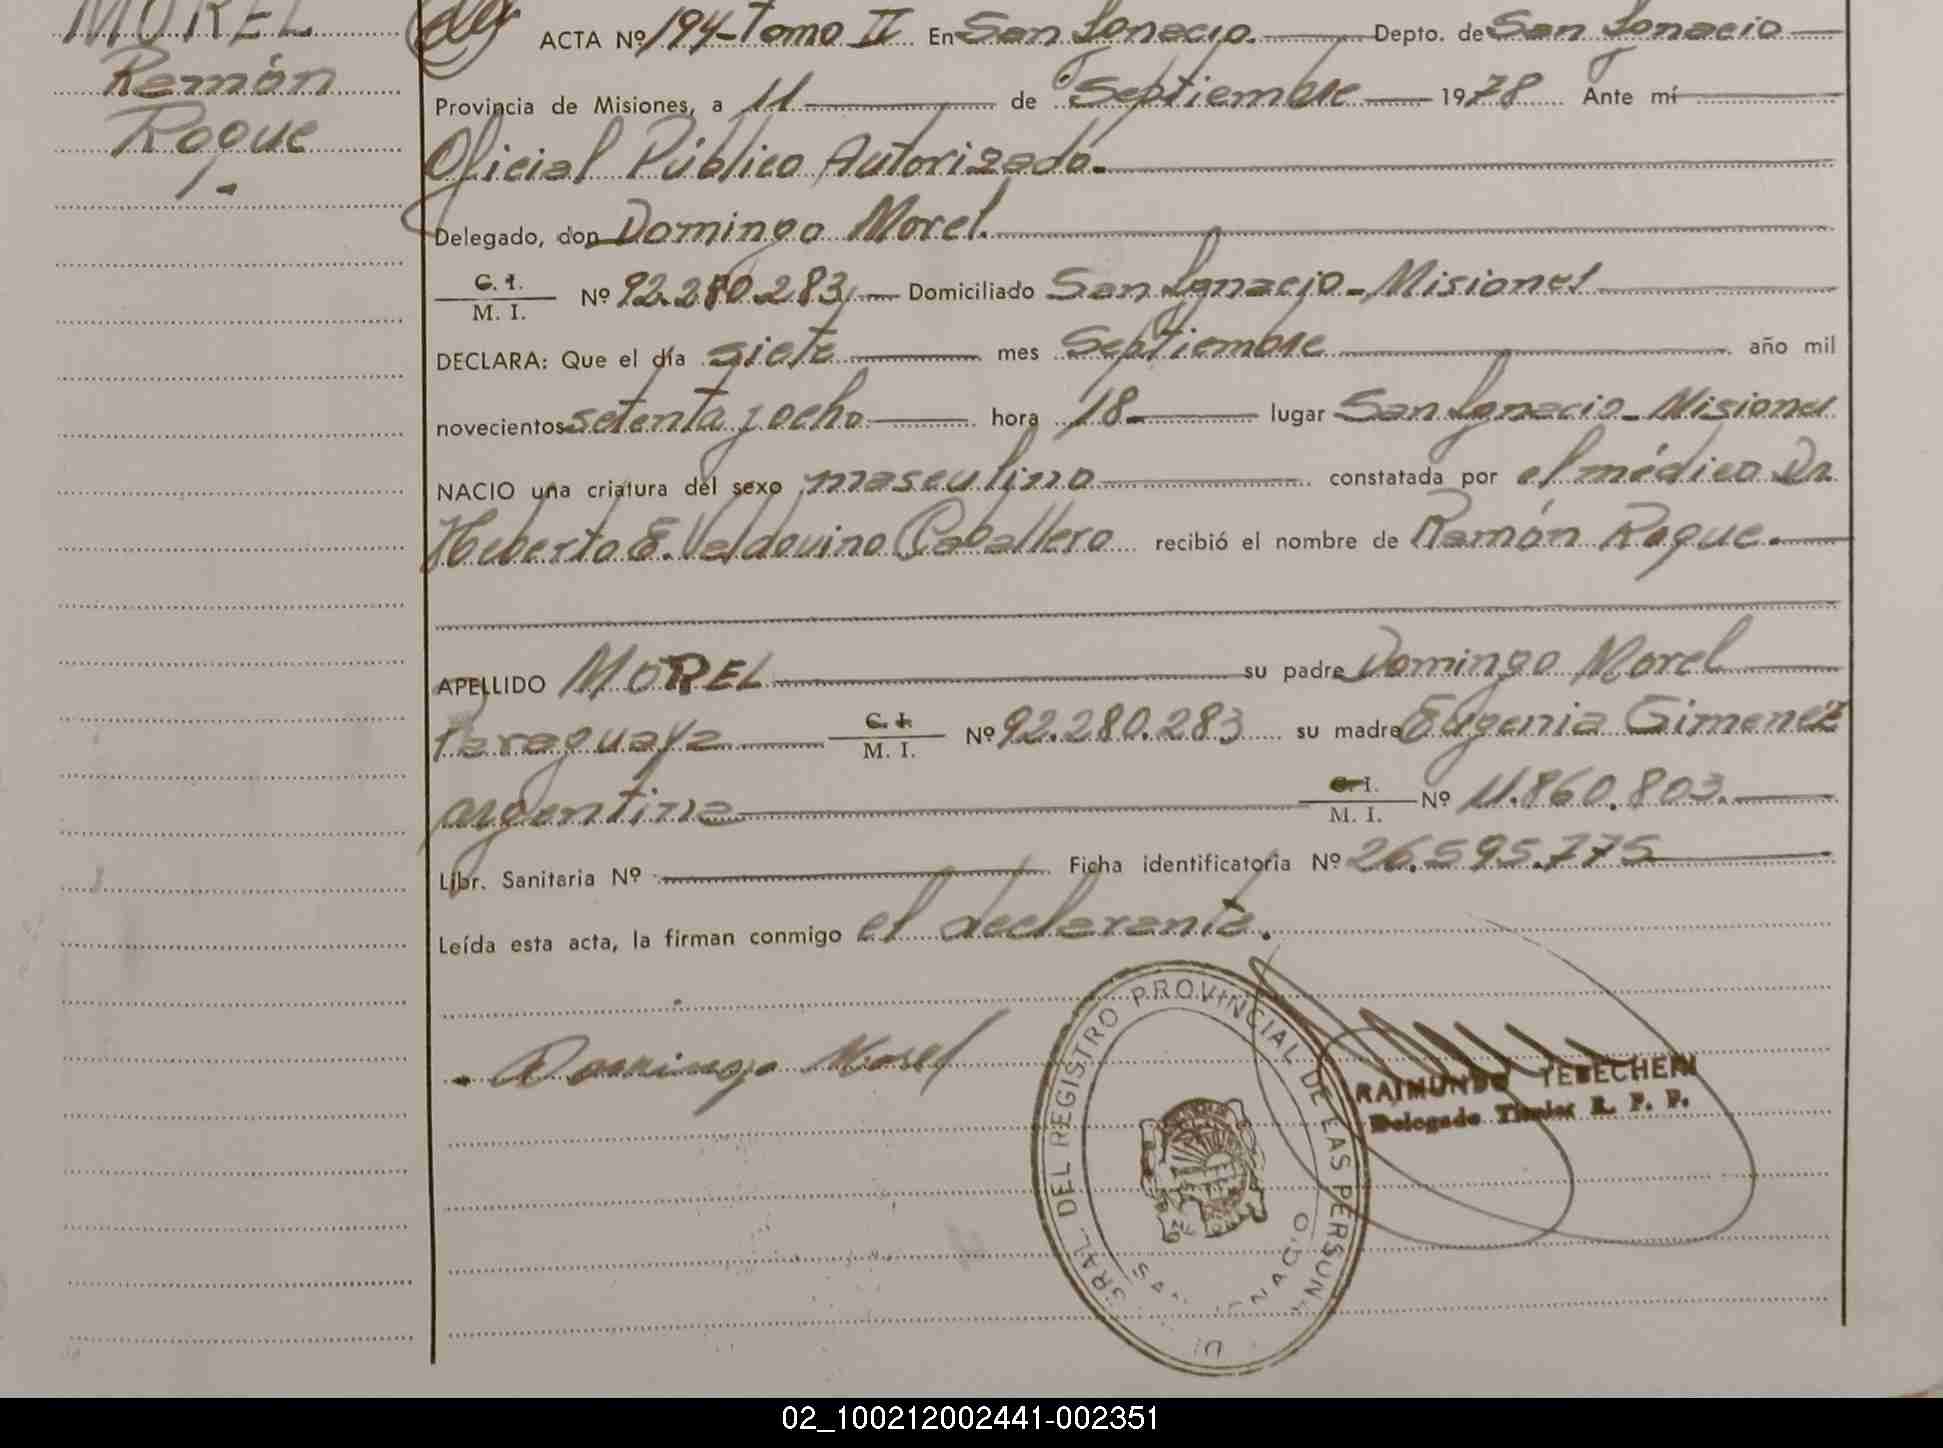 MOREL
Ramón
Roque
ACTA Nº 194-Tomo II En San Ignacio. Depto. de San Ignacio
Provincia de Misiones, a 11 de Septiembre 1978 Ante mí
Oficial Público Autorizado.
Delegado, don Domingo Morel.
C. I.
M. I.
Nº 92.280.283 Domiciliado San Ignacio - Misiones
DECLARA: Que el día siete mes Septiembre año mil
novecientos setenta y ocho hora 18 lugar San Ignacio - Misiones
NACIO una criatura del sexo masculino constatada por el médico Dr.
Heberto E. Valdovino Caballero recibió el nombre de Ramón Roque.
APELLIDO MOREL su padre Domingo Morel
Paraguaya C. I. / M. I. Nº 92.280.283 su madre Eugenia Gimenez
argentina C. I. / M. I. Nº 11.860.803.
Libr. Sanitaria Nº Ficha identificatoria Nº 26.595.775
Leída esta acta, la firman conmigo el declarante.
Domingo Morel
GRAL. DEL REGISTRO PROVINCIAL DE LAS PERSONAS
SAN IGNACIO
RAIMUNDO
Delegado Titular R. P. P.
02_100212002441-002351